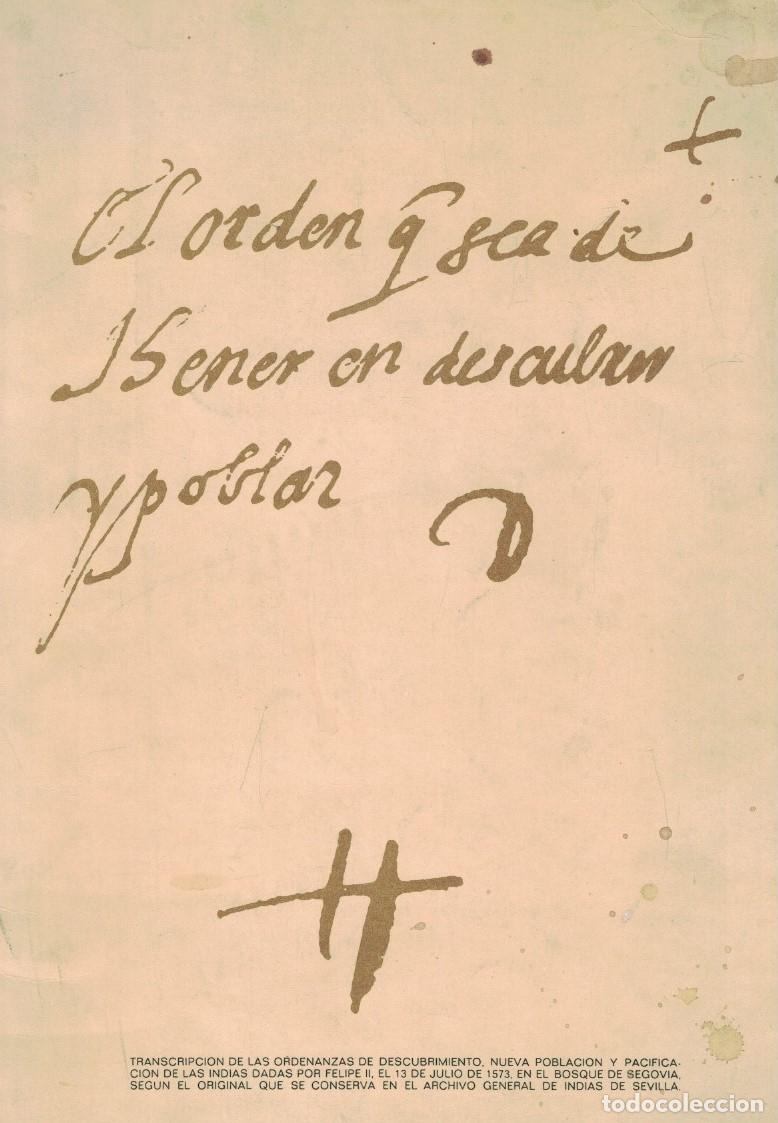 El orden q̃ sea de
thener en descubrir
y poblar
TRANSCRIPCION DE LAS ORDENANZAS DE DESCUBRIMIENTO, NUEVA POBLACION Y PACIFICA-
CION DE LAS INDIAS DADAS POR FELIPE II, EL 13 DE JULIO DE 1573, EN EL BOSQUE DE SEGOVIA,
SEGUN EL ORIGINAL QUE SE CONSERVA EN EL ARCHIVO GENERAL DE INDIAS DE SEVILLA.
todocoleccion